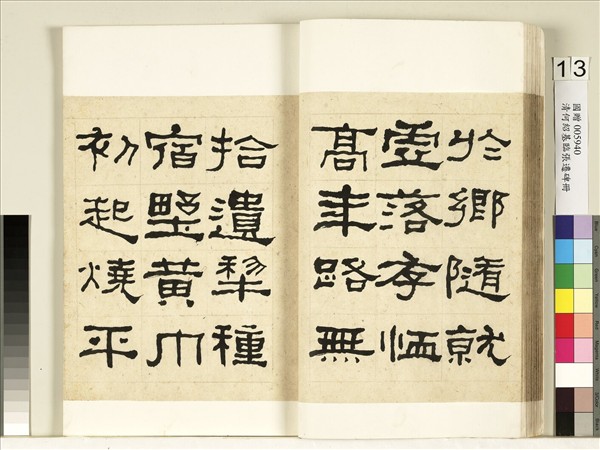 於鄉隨就
虛落存恤
高年路無
拾遺犂種
宿野黃巾
初起燒平
13
國贈 005940
清何紹基臨張遷碑冊